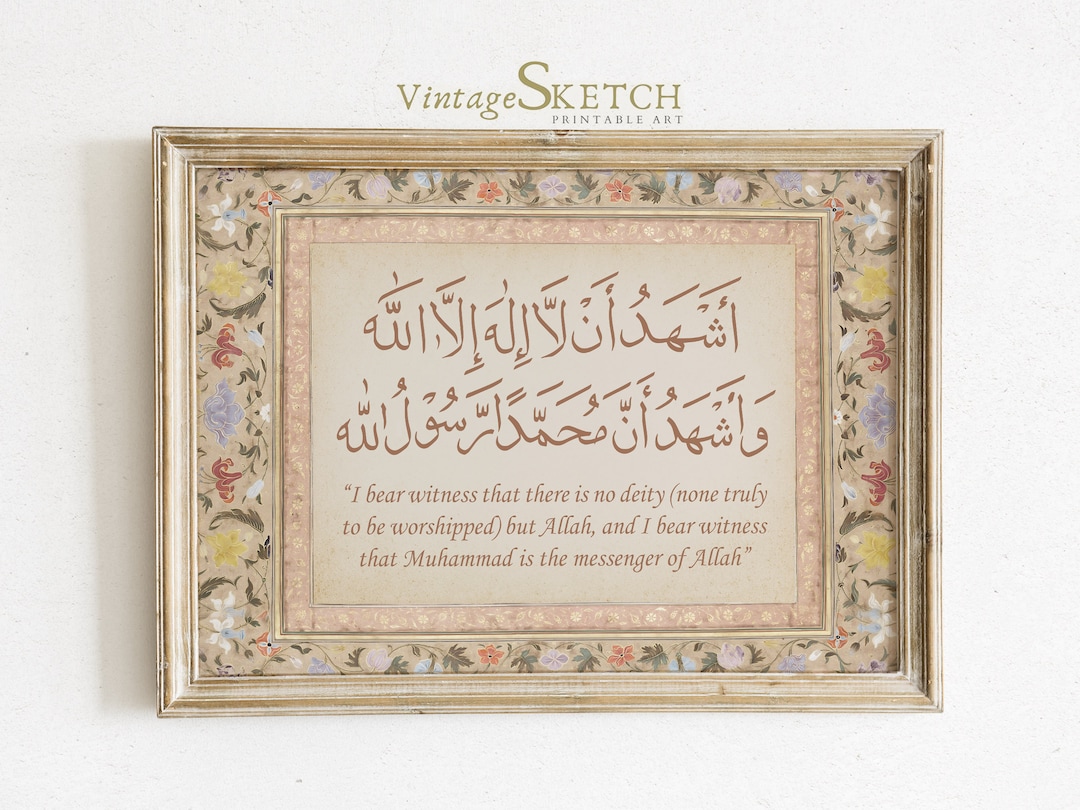 Vintage SKETCH
PRINTABLE ART
أَشْهَدُ أَنْ لَّا إِلٰهَ إِلَّا اللّٰهُ
وَأَشْهَدُ أَنَّ مُحَمَّدًا رَّسُوْلُ اللّٰه
“I bear witness that there is no deity (none truly
to be worshipped) but Allah, and I bear witness
that Muhammad is the messenger of Allah”